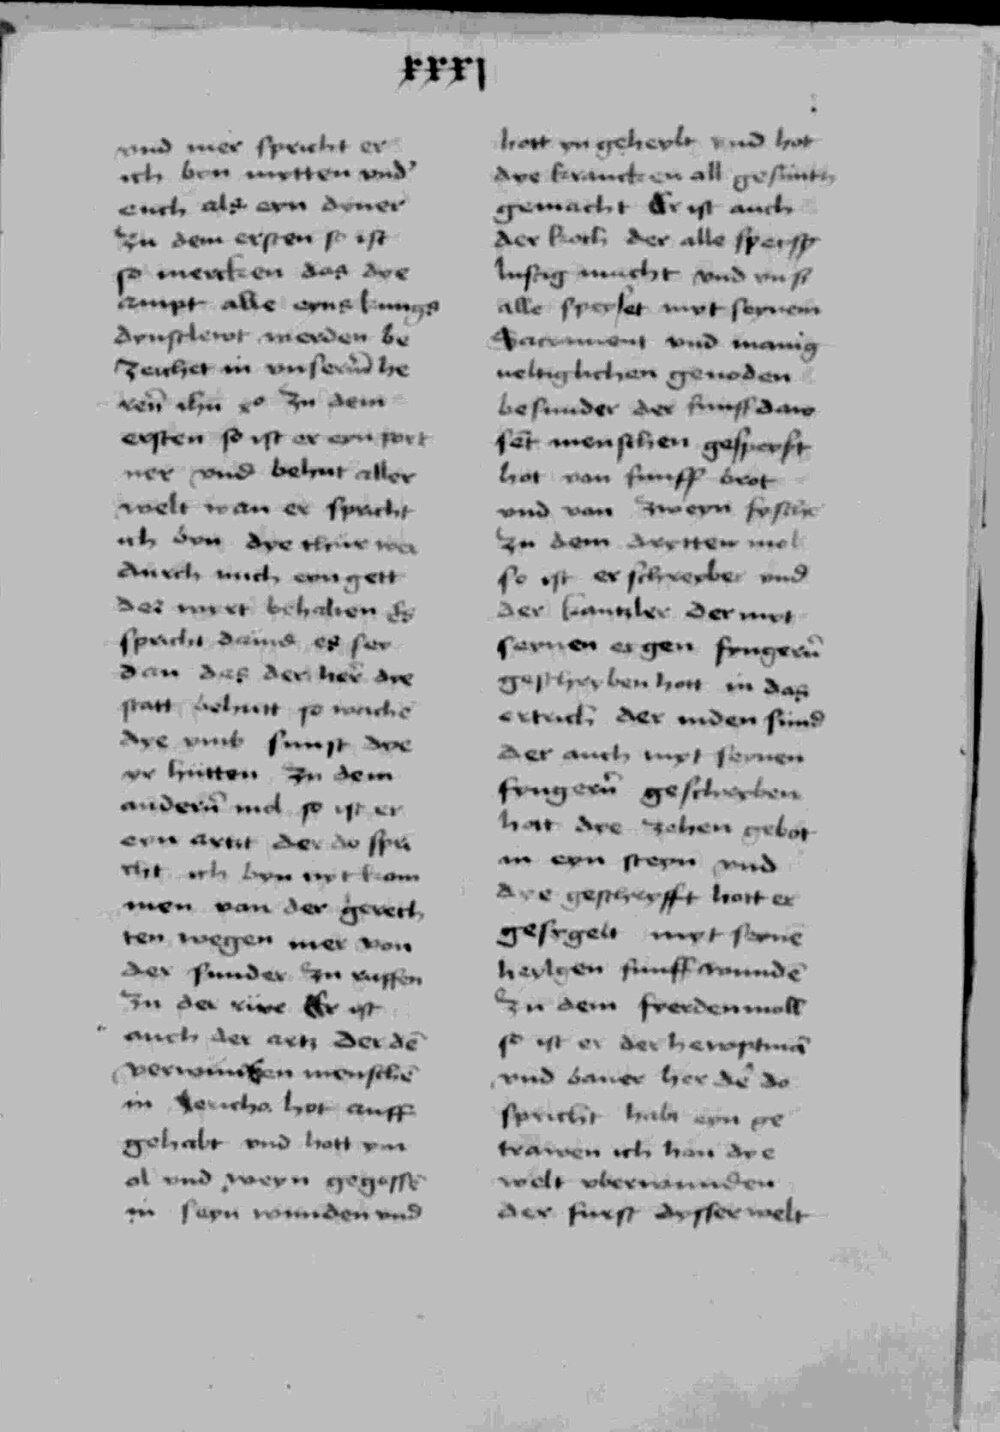 xxxi
vnd mer spricht er
ich byn mytten vnd'
euch als eyn dyner
Zu dem ersten so ist
so mercken das dye
ampt alle eyns kungs
dynstlewt werden be
zeichet in vnserm̄ he
ren̄ ihu xo Zu dem
ersten so ist er eyn port
ner vnd behut aller
welt wan er spricht
ich byn dye thur wer
durch mich eyn gett
der wyrt behalten Es
spricht dauid es sey
dan das der her̄ dye
statt behutt so wachē
dye vmb sunst dye
yr hutten Zu dem
andern̄ mol so ist er
eyn artzt der do spri
cht ich byn nyt kom
men von der gerech
ten wegen mer von
der sunder zu ruffen
Zu der riwe Er ist
auch der artz Der dē
verwunten menschē
in Jericho hot auff
gehabt vnd hott ym
ol vnd weyn gegossē
in seyn wunden vnd
hott yn geheylt vnd hot
dye krancken all gesunth
gemacht Er ist auch
der koch der alle speysz
lustig macht vnd vnsz
alle speyset myt seynem
Sacrament vnd manig
ueltiglichen genoden
besunder der funff daw
sēt menschen gespeyst
hot von funff brot
vnd von zweyn fysche
Zu dem drytten mol
so ist er schreyber vnd
der kantzler Der myt
seynen eygen fyngern̄
geschryben hott in das
ertrich der inden sund
der auch myt seynen
fyngern̄ geschryben
hott dye zehen gebot
in eyn steyn vnd
dye geschryfft hott er
gesygelt myt seynē
heylgen funff wundē
Zu dem fyerden moll
so ist er der hewptmā
vnd baner her dē do
spricht habt eyn ge
trawen ich han dye
welt vberwunden
der furst dysser welt